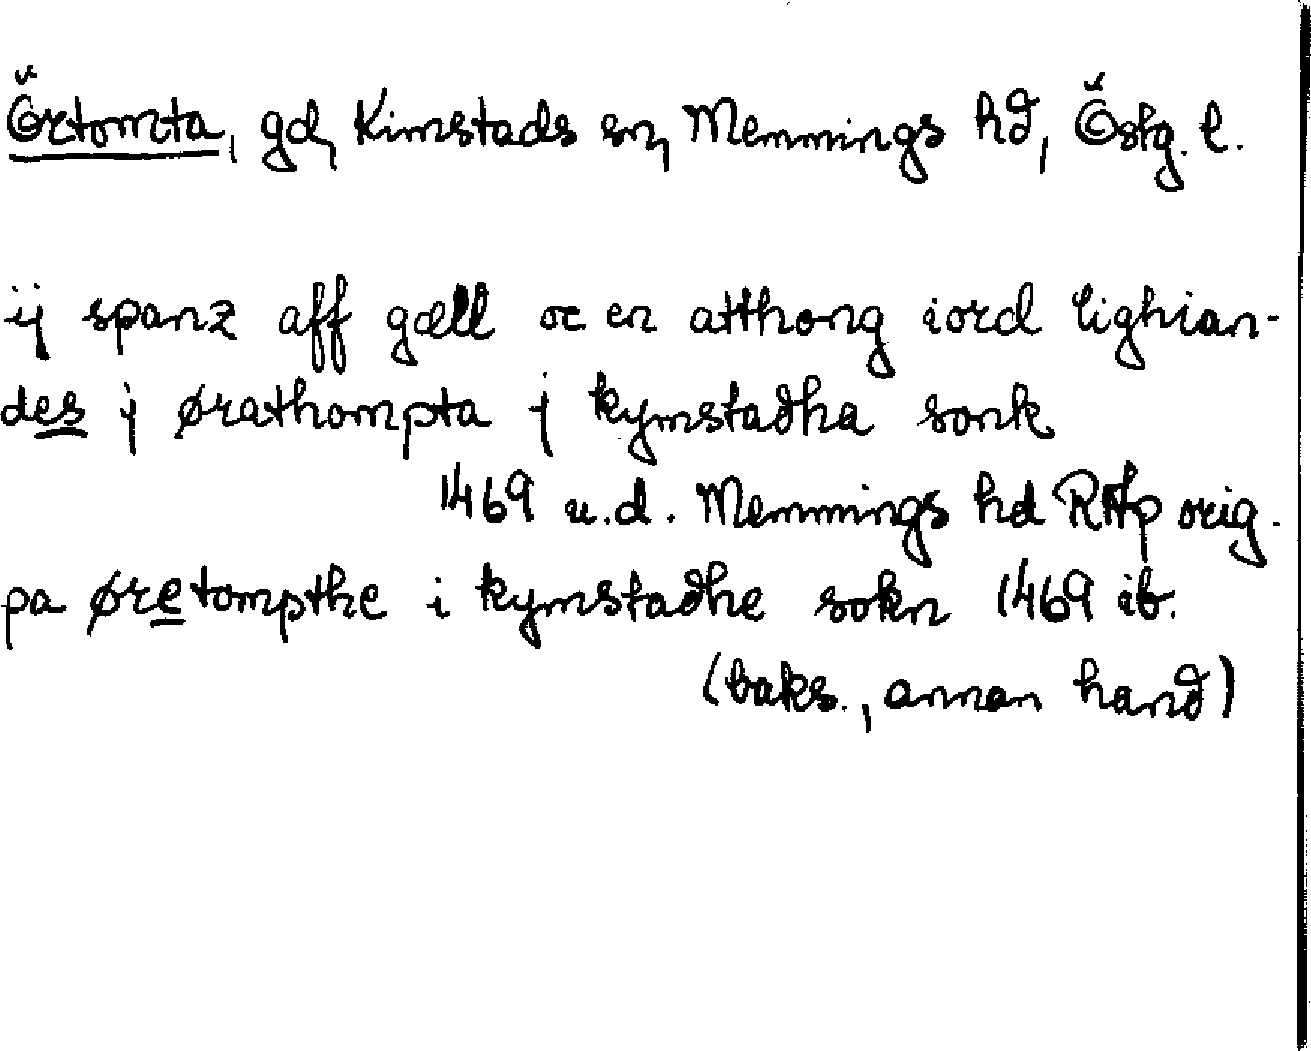 Örtomta, gd, Kimstads sn, Memmings hd, Östg. l.
ij spanz aff gæll oc en atthong iord lighian-
des j ørathompta j kymstadha sonk
1469 u.d. Memmings hd RAp orig.
pa øretompthe i kymstadhe sokn 1469 ib.
(baks., annan hand)